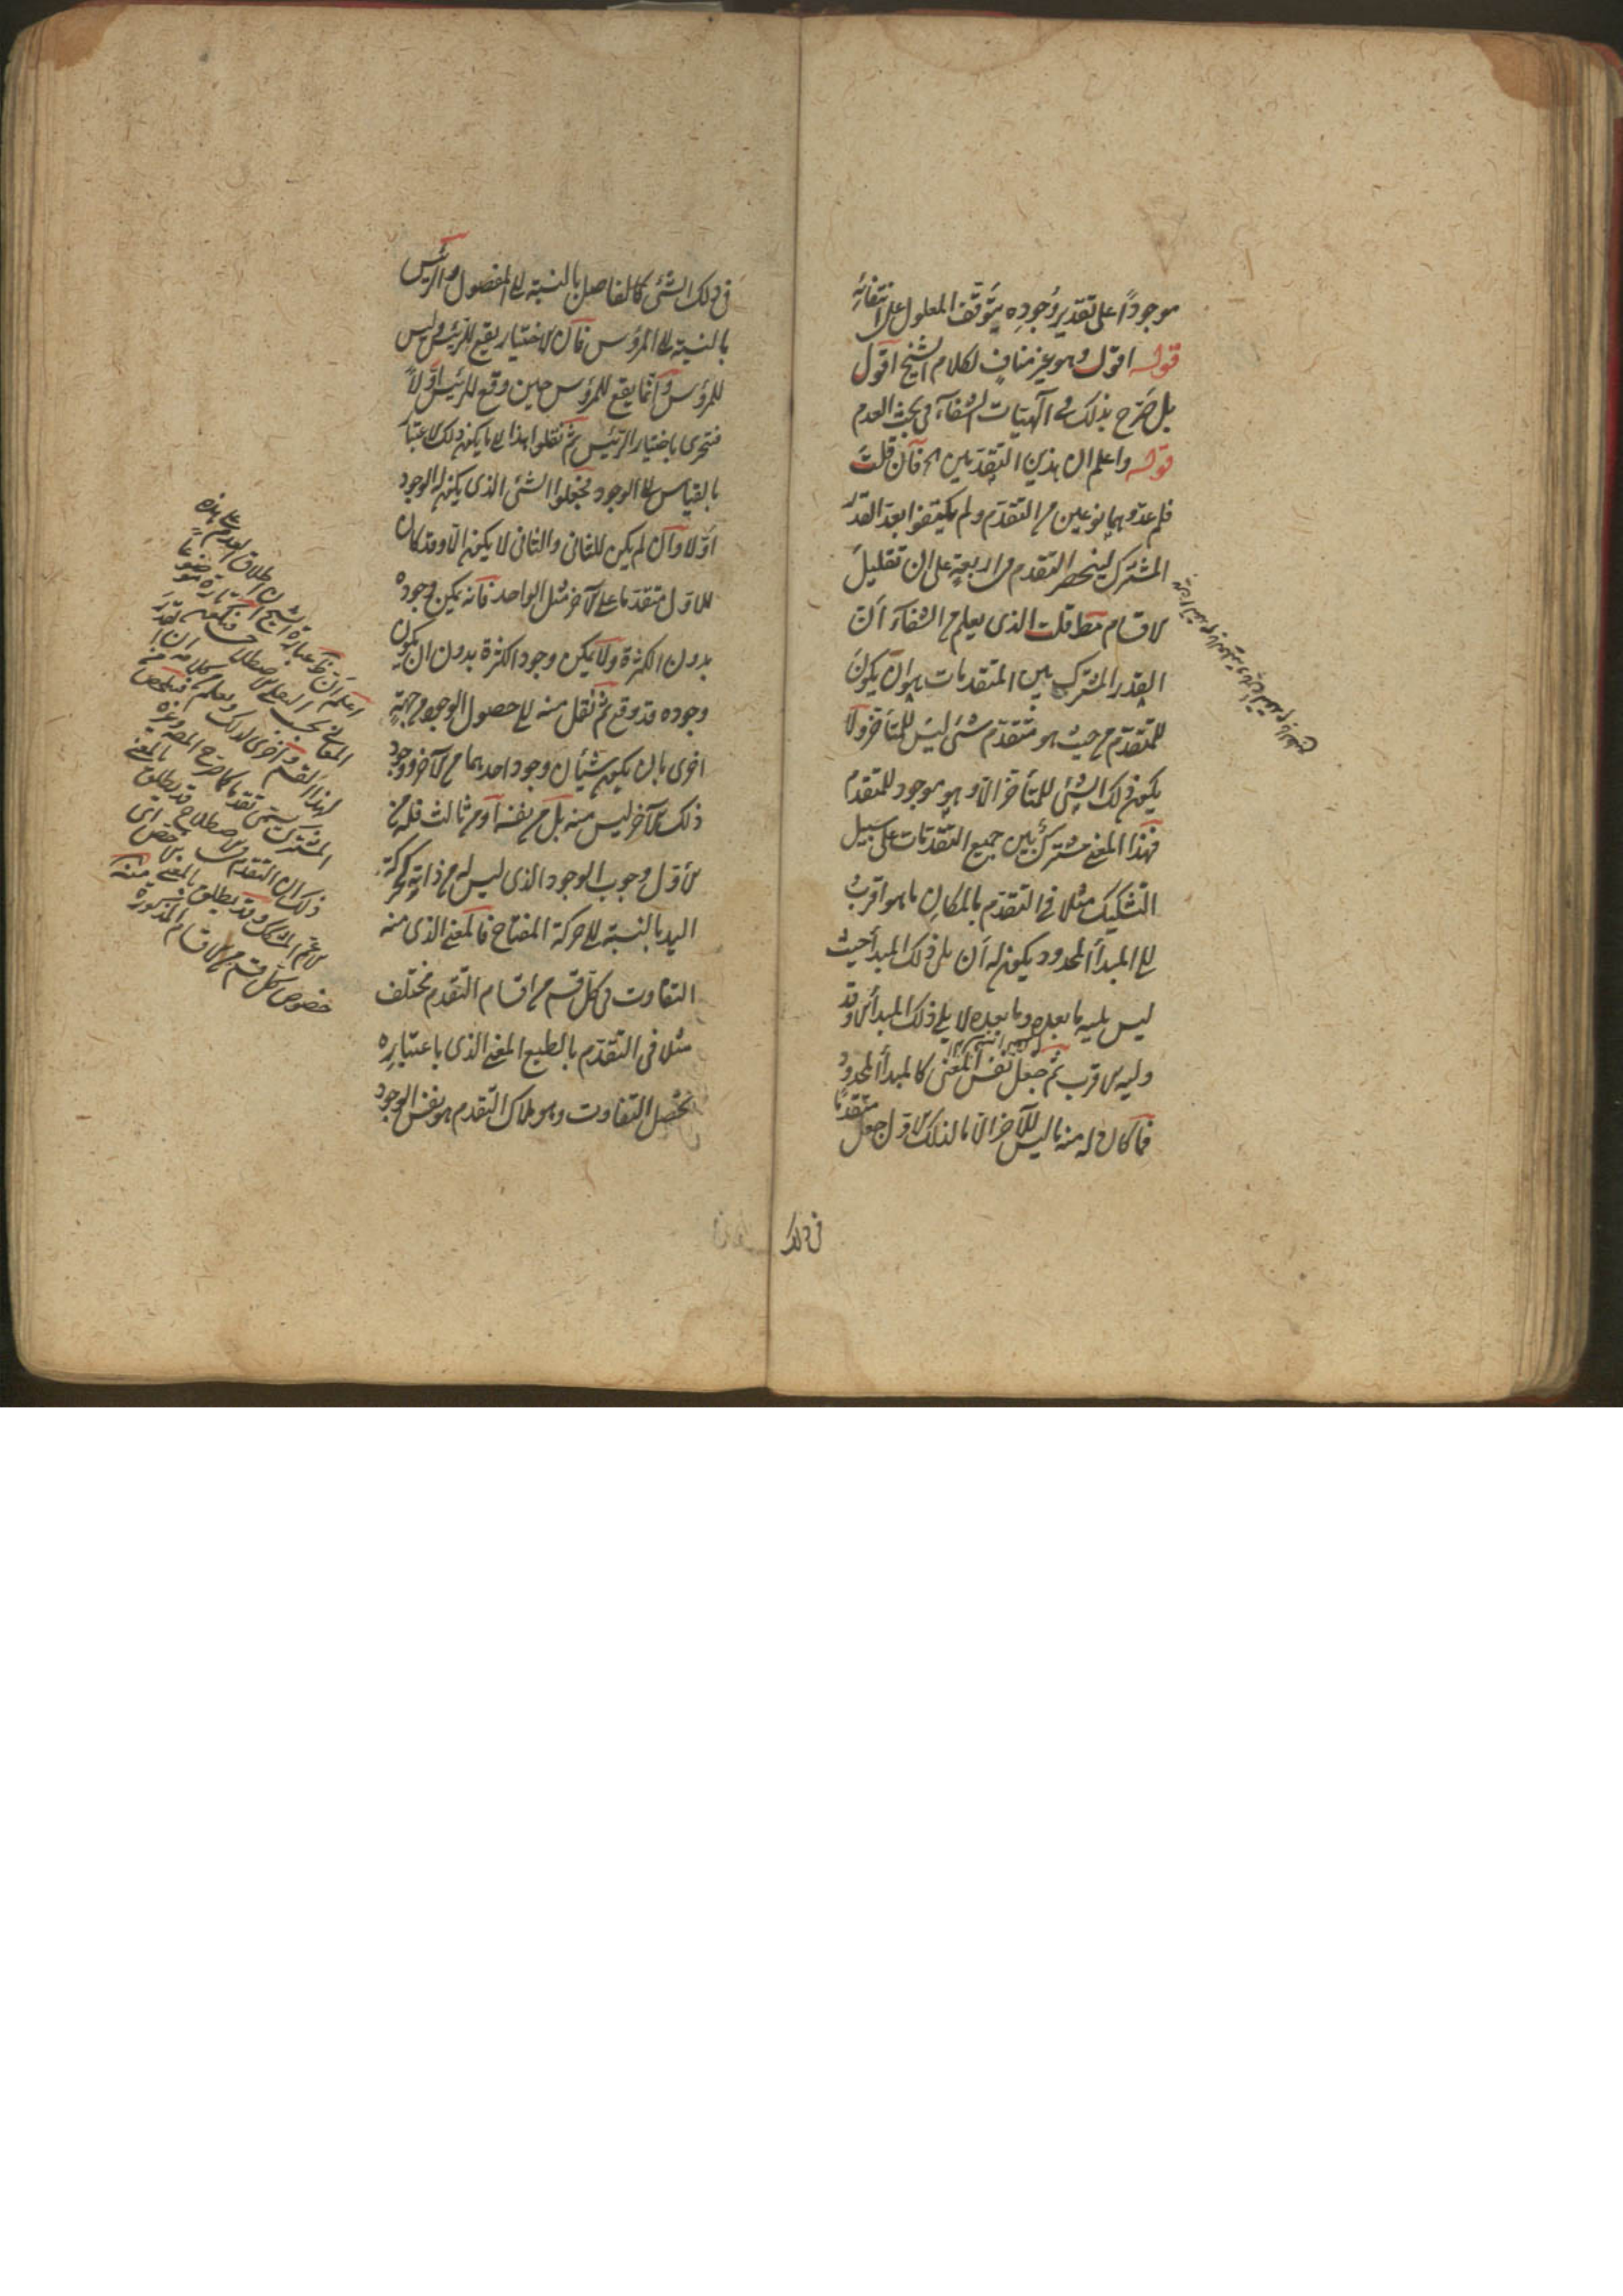 موجودًا على تقدير وجوده يتوقف المعلول على انتفائه
قوله اقول وهو غير مناف لكلام الشيخ اقول
بل صرح بذلك في آلهيات الشفاء في بحث العدم
قوله واعلم ان هذين التقدمين الخ فان قلت
فلم عدوهما نوعين من التقدم ولم يكتفوا بعد القدر
المشترك لينحصر التقدم في اربعة على ان تقليل
الاقسام قلت الذي يعلم من الشفاء ان
القدر المشترك بين المتقدمات هو ان يكون
للمتقدم من حيث هو متقدم شئ ليس للمتأخر ولا
يكون ذلك الشئ للمتأخر الا وهو موجود للمتقدم
فهذا المعنى مشترك بين جميع التقدمات على سبيل
التشكيك مثلا في التقدم بالمكان ما هو اقرب
الى المبدأ المحدود يكون له ان يلي ذلك المبدأ حيث
ليس يليه ما بعده وما بعده لا يلي ذلك المبدأ الا وقد
وليه الاقرب ثم جعل نفس المعنى كالمبدأ المحدود
فما كان له منه ما ليس للآخر الا ما لذلك الاول جعل متقدمًا
في ذلك
في ذلك الشئ كالفاضل بالنسبة الى المفضول والرئيس
بالنسبة الى المرؤس فان الاختيار يقع للرئيس وليس
للمرؤس وانما يقع للمرؤس حين وقع للرئيس اولاً
فتحرى باختيار الرئيس ثم نقلوا هذا الى ما يكون ذلك الاعتبار
بالقياس الى الوجود فجعلوا الشئ الذي يكون له الوجود
اولا وان لم يكن للثاني والثاني لا يكون الا وقد كان
للاول متقدما على الآخر مثل الواحد فانه يمكن وجوده
بدون الكثرة ولا يمكن وجود الكثرة بدون ان يكون
وجوده قد وقع ثم نقل منه الى حصول الوجود من جهة
اخرى بان يكون شيئان وجود احدهما من الآخر ووجود
ذلك الآخر ليس منه بل من نفسه او من ثالث فله من
الاول وجوب الوجود الذي ليس له من ذاته كحركة
اليد بالنسبة الى حركة المفتاح فالمعنى الذي منه
التفاوت في كل قسم من اقسام التقدم مختلف
مثلا في التقدم بالطبع المعنى الذي باعتباره
يحصل التفاوت وهو ملاك التقدم هو نفس الوجود
اعلم ان عبارة الشيخ
لهذا القسم واخرى لذلك ويعلم من كلامه ان
المشترك يسمى تقدما كما صرح المص وغيره
ذلك ان التقدم في الاصطلاح قد يطلق بالمعنى
الاعم المشترك وقد يطلق بالمعنى الاخص اى
خصوص كل قسم من الاقسام المذكورة منه